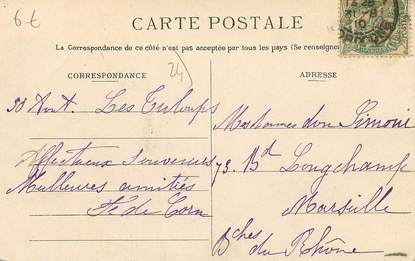 6-€
CARTE POSTALE
La Correspondance de ce côté n'est pas acceptée par tous les pays (Se renseigner
24
CORRESPONDANCE
ADRESSE
30 Août. Les
Affectueux souvenirs
Meilleures amitiés
de
Simone
73. Bd Longchamp
Marseille
Bches du Rhône